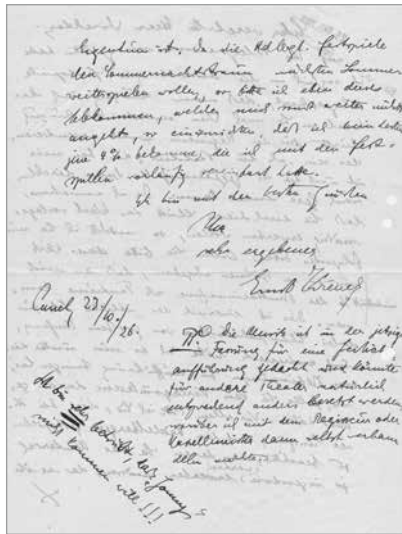 Eigentum ist. Da die Kdlegl. Festspiele
den Sommernachtstraum nächsten Sommer
weiterspielen wollen, so bitte ich eben dieses
Abkommen, welches mich sonst weiter nicht
angeht, so einzurichten, daß ich
jene 4% bekomme, die ich mit den Fest-
spielen vorläufig vereinbart habe.
Ich bin mit den besten Grüßen
Ihr
sehr ergebener
Ernst Krenek
23/10.
/26.
Die Musik ist in der jetzigen
Fassung für eine
aufführung gedacht und könnte
für andere Theater natürlich
entsprechend anders besetzt werden
worüber ich mit dem Regisseur oder
Kapellmeister dann selbst verhan
deln
Ich bin sehr betrübt, daß Jonny
nicht kommen will!!!